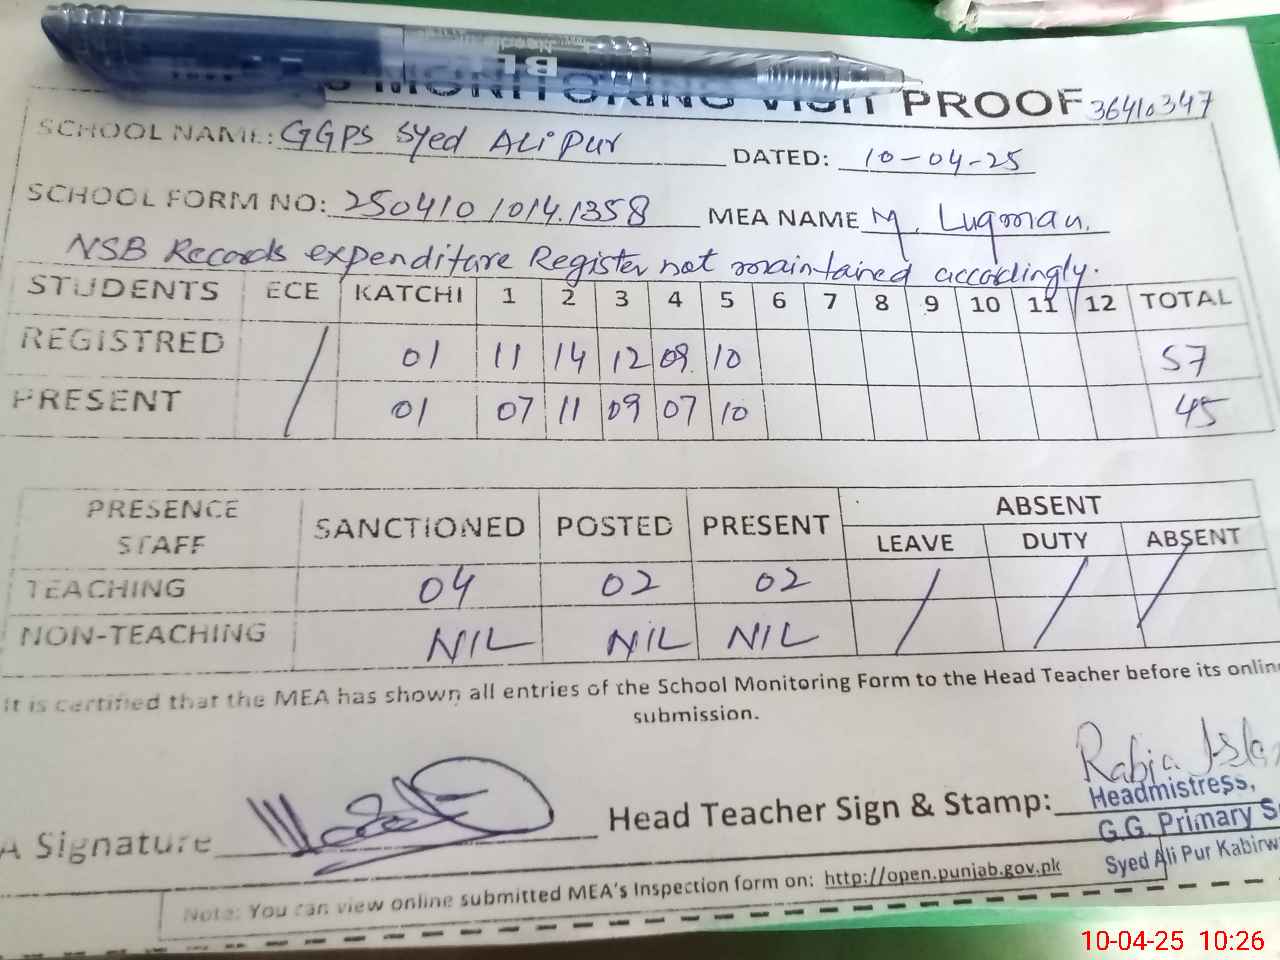 MONITORING VISIT PROOF 36410347
SCHOOL NAME: GGPS Syed Ali Pur DATED: 10-04-25
SCHOOL FORM NO: 250410 1014.1358 MEA NAME M. Luqman.
NSB Records expenditure Register not maintained accordingly.
STUDENTS ECE KATCHI 1 2 3 4 5 6 7 8 9 10 11 12 TOTAL
REGISTRED / 01 11 14 12 09 10 57
PRESENT 01 07 11 09 07 10 45
PRESENCE STAFF SANCTIONED POSTED PRESENT ABSENT
LEAVE DUTY ABSENT
TEACHING 04 02 02 / / /
NON-TEACHING NIL NIL NIL
It is certified that the MEA has shown all entries of the School Monitoring Form to the Head Teacher before its online
submission.
A Signature Head Teacher Sign & Stamp: Rabia Isla
Headmistress,
G.G. Primary S
Syed Ali Pur Kabirw
Note: You can view online submitted MEA's Inspection form on: http://open.punjab.gov.pk
10-04-25 10:26